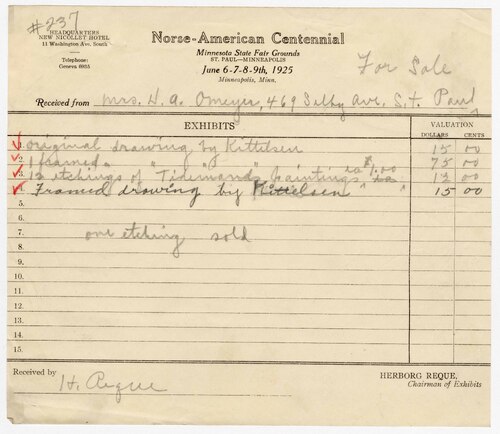 #237
HEADQUARTERS
NEW NICOLLET HOTEL
11 Washington Ave. South
Telephone:
Geneva 8935
Norse-American Centennial
Minnesota State Fair Grounds
ST. PAUL—MINNEAPOLIS
June 6-7-8-9th, 1925
Minneapolis, Minn.
For Sale
Received from Mrs. H. A. Omeyer, 469 Selby Ave. St. Paul
EXHIBITS
VALUATION
DOLLARS CENTS
1. original drawing by Kittelsen 15 00
2. 1 framed " " " 75 00
3. 13 etchings of Tidemands paintings ea $1.00 13 00
4. Framed drawing by Kittelsen " " 15 00
5.
6.
7. one etching sold
8.
9.
10.
11.
12.
13.
14.
15.
Received by H. Reque
HERBORG REQUE,
Chairman of Exhibits